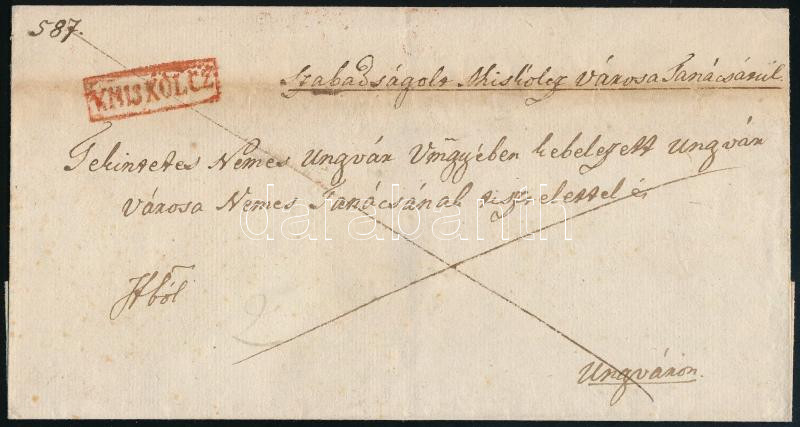 587.
V.MISKOLCZ
Szabadságolt Miskolcz Városa Tanácsátúl.
Tekintetes Nemes Ungvár Vmgyében kebelezett Ungvár
Városa Nemes Tanácsának tisztelettel
darabanth
Hból
Ungváron.